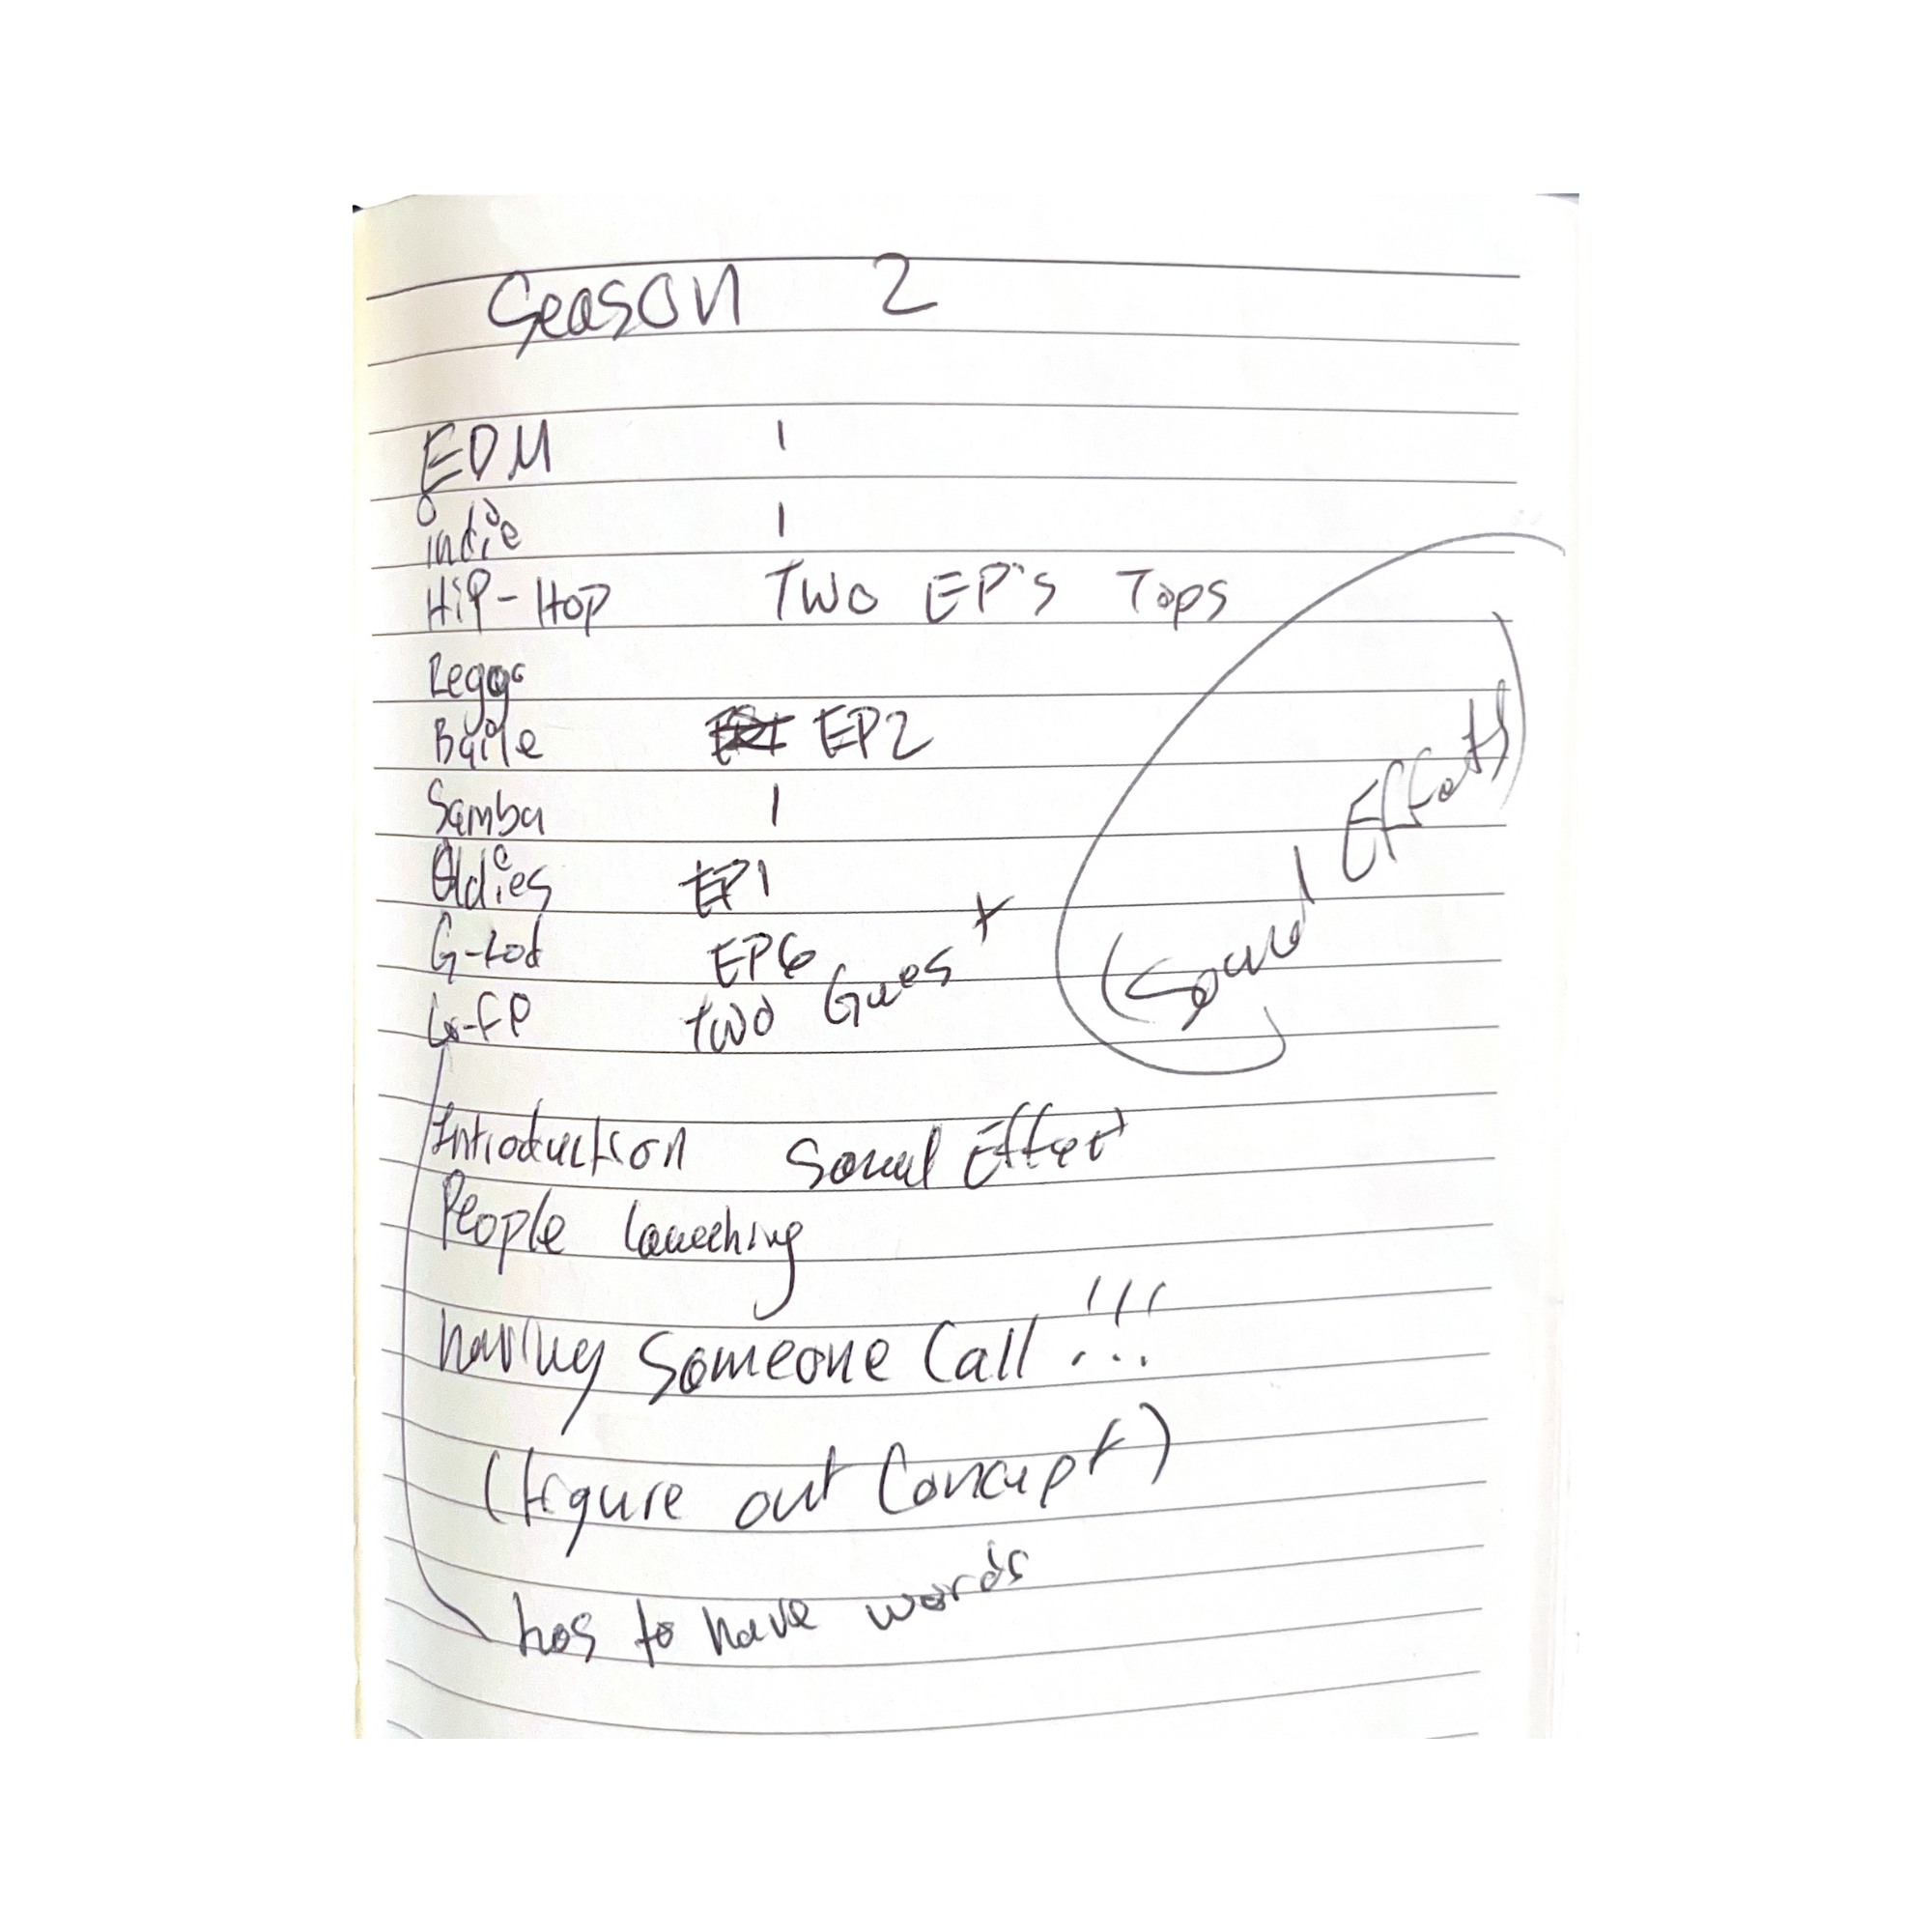 Season 2
EDM 1
indie 1
Hip-Hop Two EP's Tops
Baile EP2
Samba 1
Oldies EP1
EP6
two Guest
(Sound Effects)
Introduction Sound Effect
People
having Someone Call !!!
(figure out Concept)
has to have words